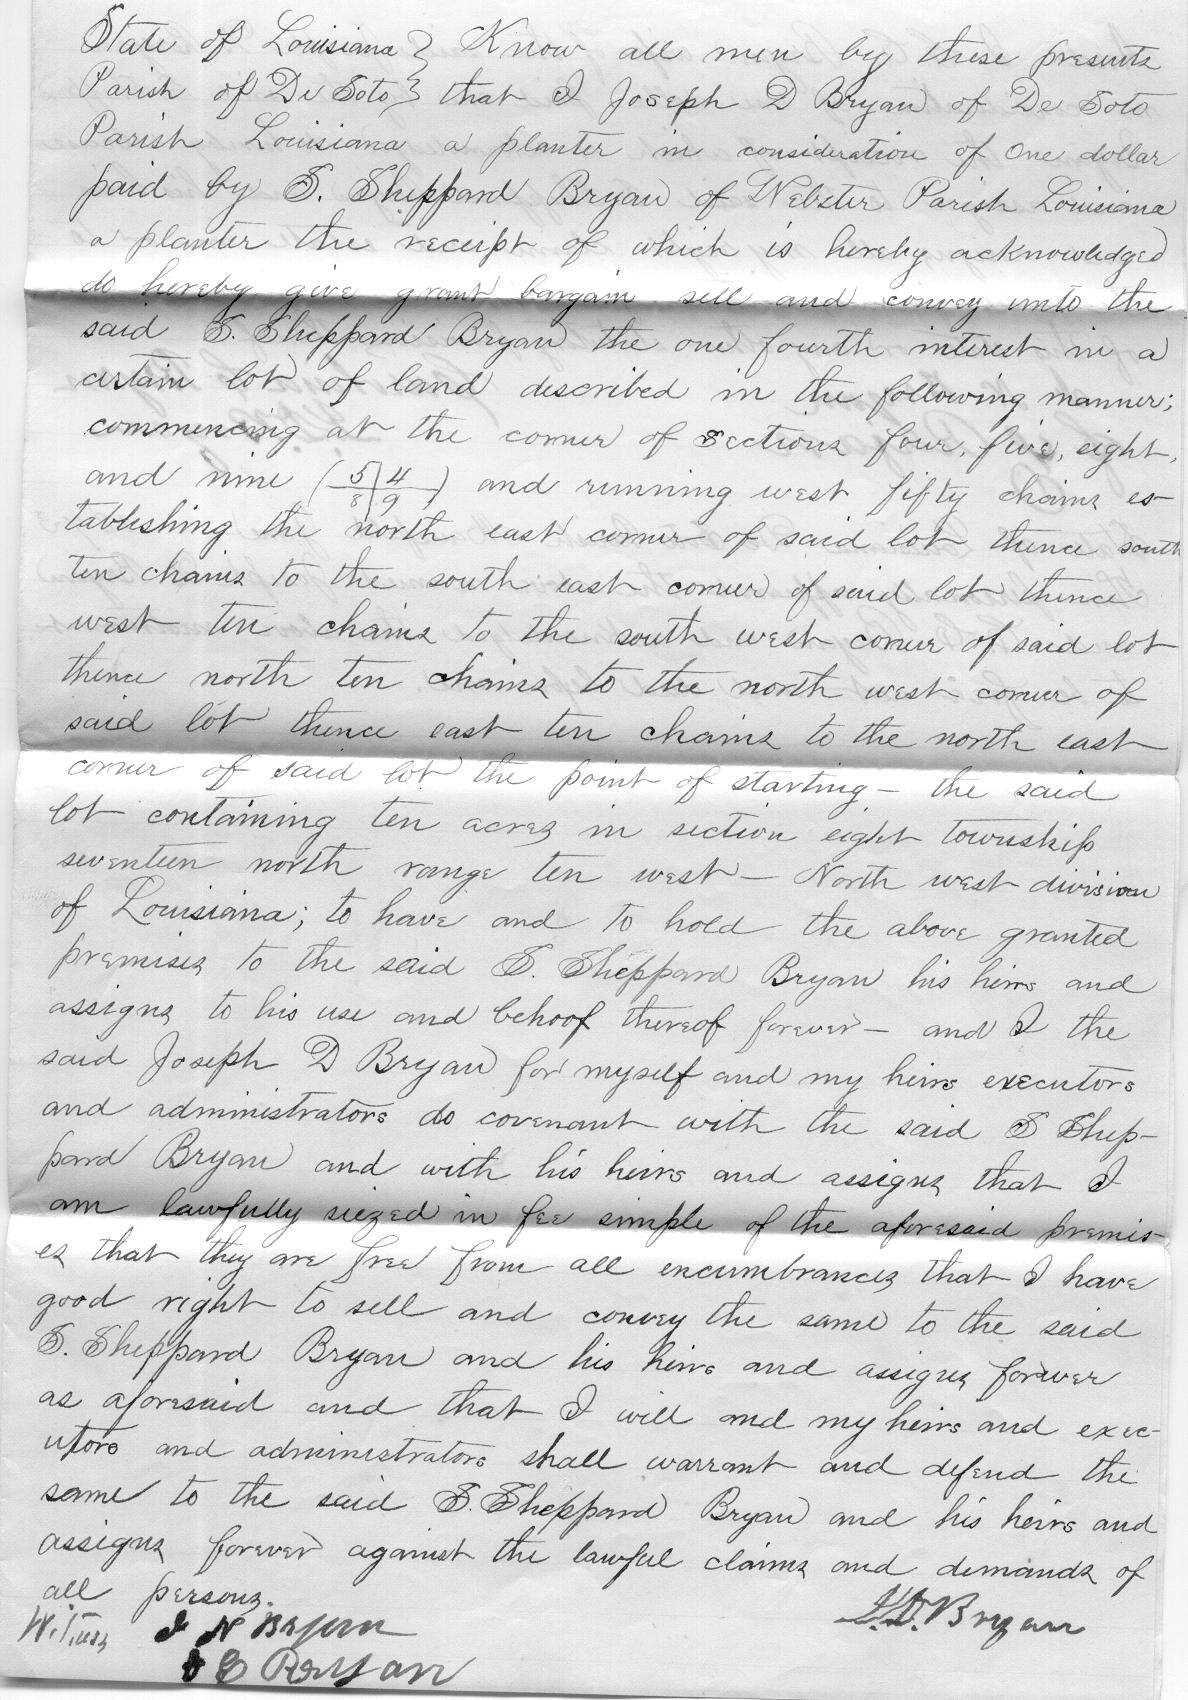 State of Louisiana } Know all men by these presents
Parish of De Soto } that I Joseph D Bryan of De Soto
Parish Louisiana a planter in consideration of One dollar
paid by S. Sheppard Bryan of Webster Parish Louisiana
a planter the receipt of which is hereby acknowledged
do hereby give grant bargain sell and convey unto the
said S. Sheppard Bryan the one fourth interest in a
certain lot of land described in the following manner;
commencing at the corner of sections four, five, eight,
and nine (5|4 8|9) and running west fifty chains es-
tablishing the north east corner of said lot thence south
ten chains to the south east corner of said lot thence
west ten chains to the south west corner of said lot
thence north ten chains to the north west corner of
said lot thence east ten chains to the north east
corner of said lot the point of starting - the said
lot containing ten acres in section eight township
seventeen north range ten west - North west division
of Louisiana; to have and to hold the above granted
premises to the said S. Sheppard Bryan his heirs and
assigns to his use and behoof thereof forever - and I the
said Joseph D Bryan for myself and my heirs executors
and administrators do covenant with the said S Shep-
pard Bryan and with his heirs and assigns that I
am lawfully siezed in fee simple of the aforesaid premis-
es that they are free from all encumbrances that I have
good right to sell and convey the same to the said
S. Sheppard Bryan and his heirs and assigns forever
as aforesaid and that I will and my heirs and exec-
utors and administrators shall warrant and defend the
same to the said S. Sheppard Bryan and his heirs and
assigns forever against the lawful claims and demands of
all persons.
J. D. Bryan
Witness J N Bryan
J E Bryan